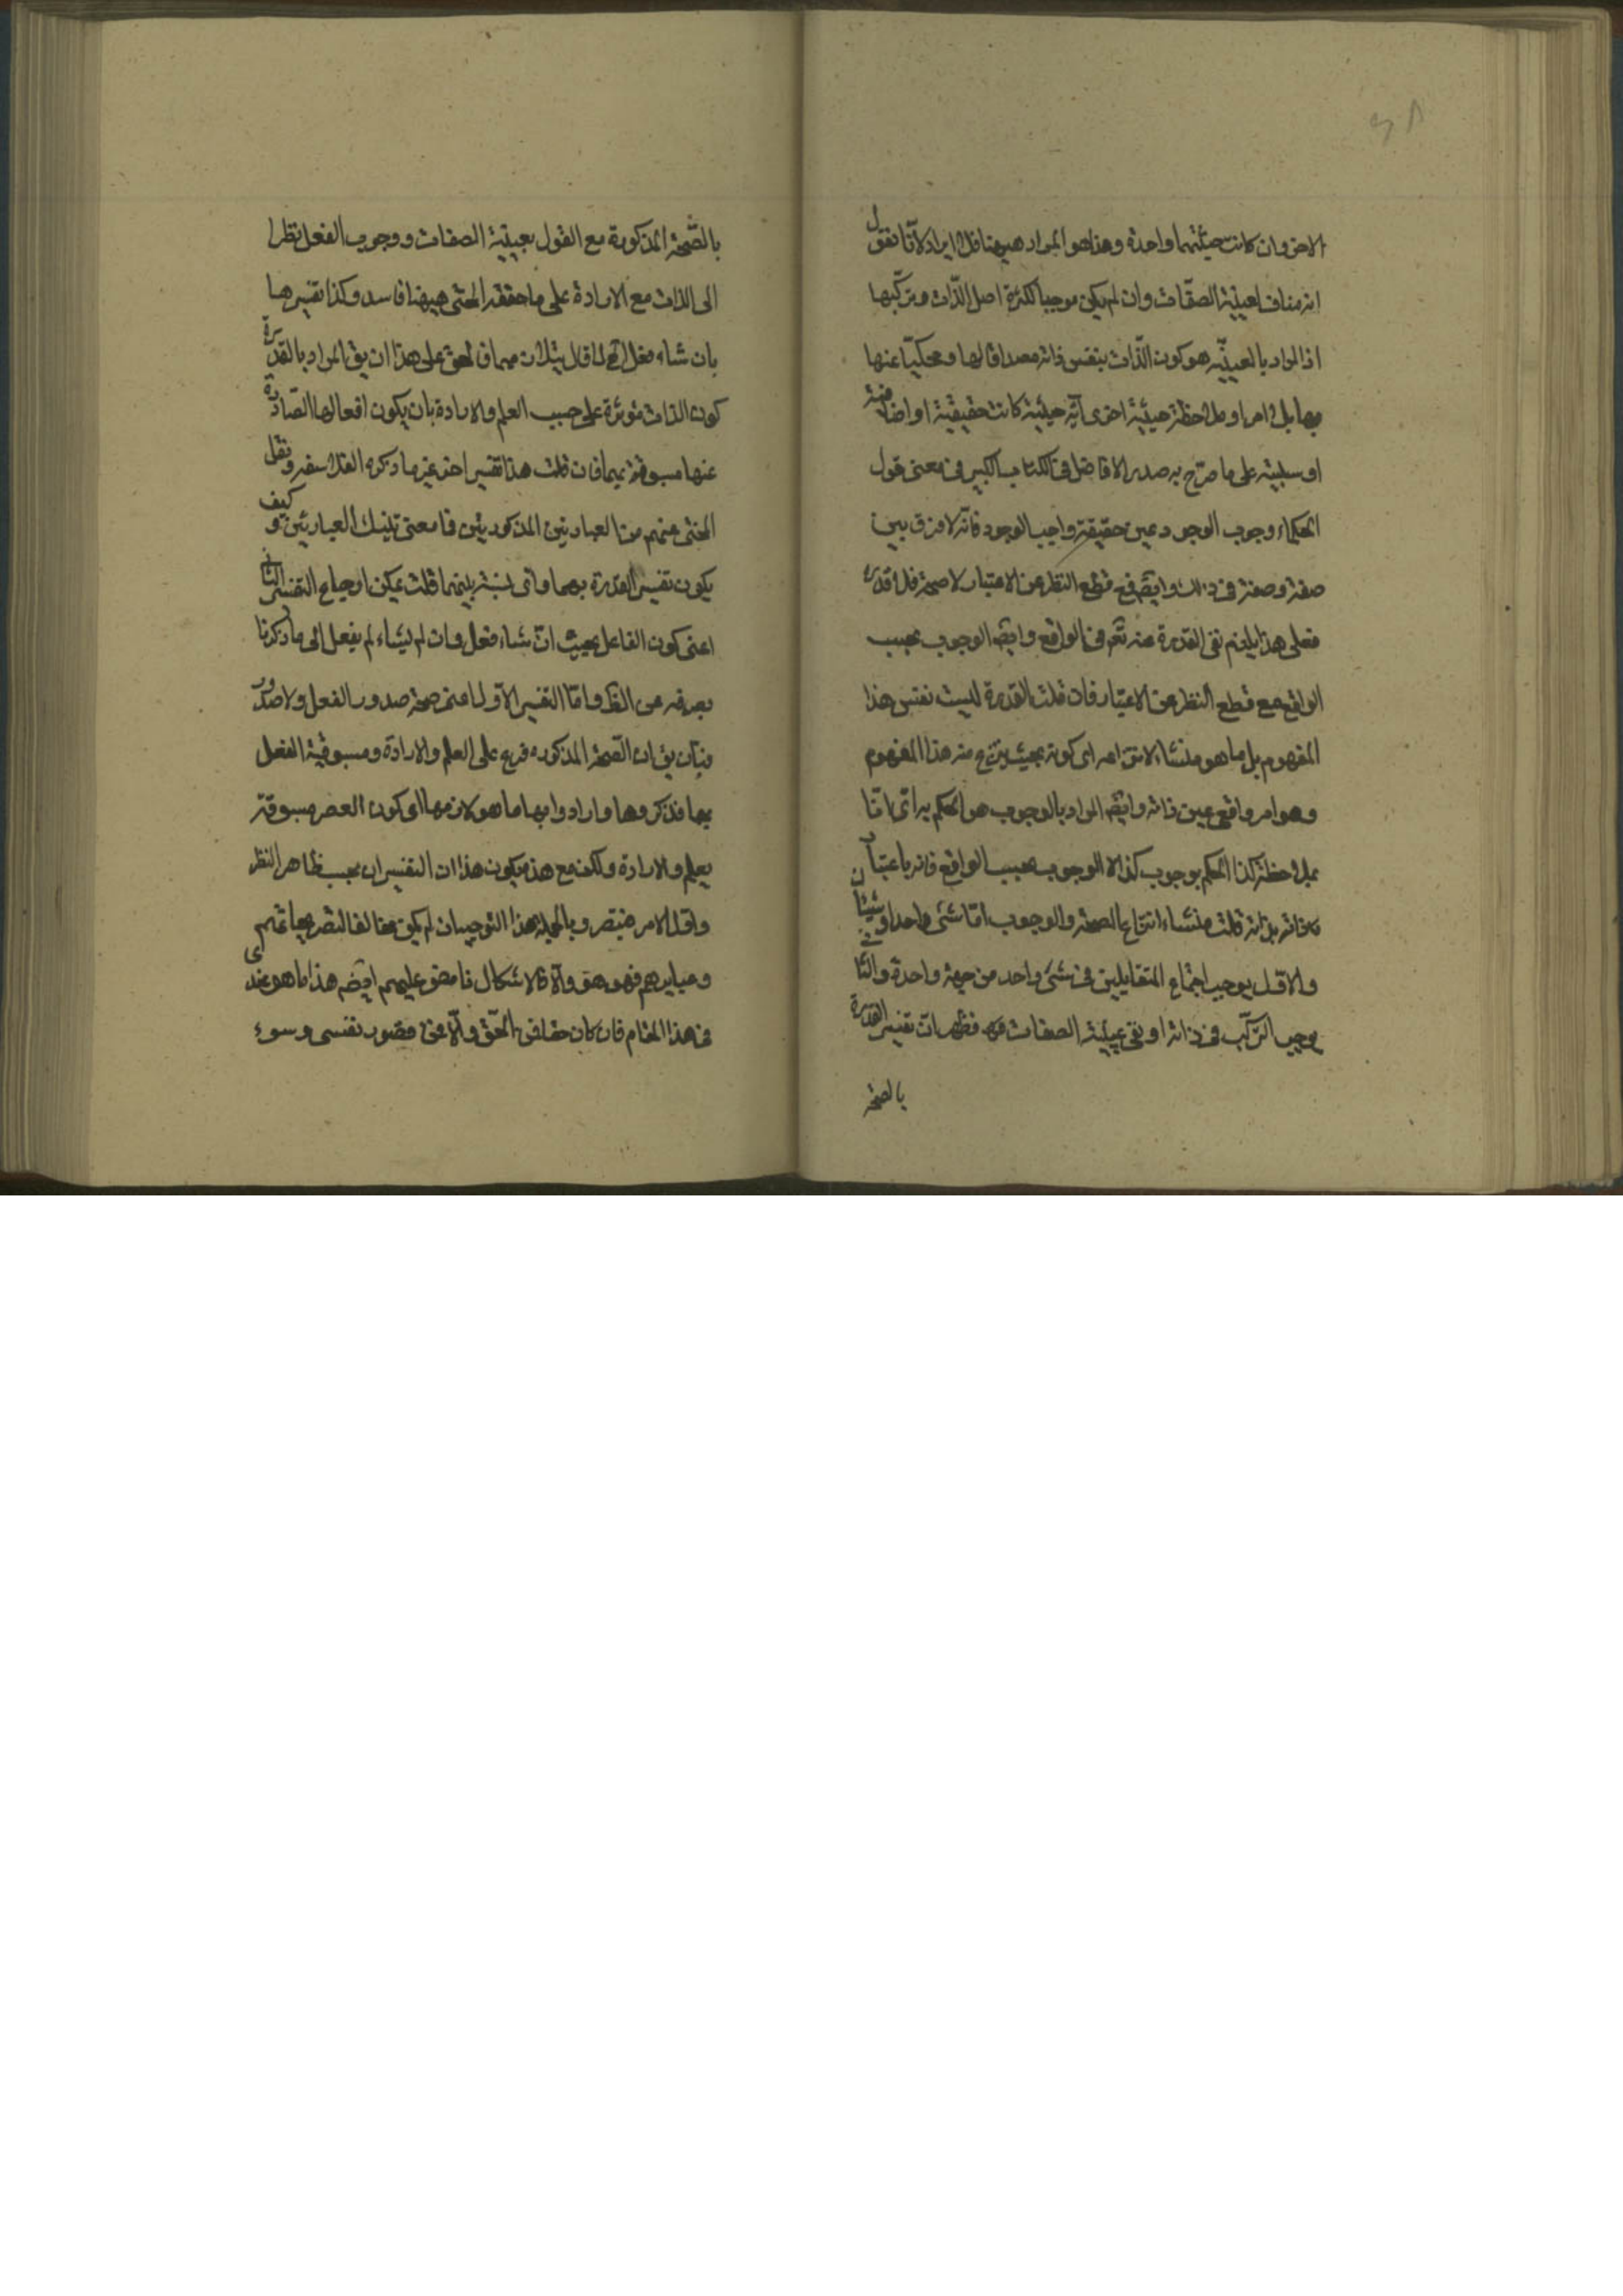 الاخر وان كانت حيثيتهما واحدة وهذا هو المراد هيهنا فلا ايراد لانا نقول
انه مناف لعينية الصفات وان لم يكن موجبا لكثرة اصل الذات وتركبها
اذ المراد بالعينية هو كون الذات بنفس ذاته مصداقا لها ومحكيا عنها
بها بلا امر او ملاحظة حيثية اخرى اية حيثية كانت حقيقية او اضافية
او سلبية على ما صرح به صدر الافاضل فى الكتاب الكبير فى معنى قول
الحكماء وجوب الوجود عين حقيقة واجب الوجود فانه لا فرق بين
صفة وصفة فى ذلك وايضه فمع قطع النظر عن الاعتبار لا صحة فلا قدرة
فعلى هذا يلزم نفى القدرة عنه تعم فى الواقع وايضه الوجوب بحسب
الواقع مع قطع النظر عن الاعتبار فان قلت القدرة ليست نفس هذا
المفهوم بل ما هو منشاء لانتزاعه اى كونه بحيث ينتزع منه هذا المفهوم
وهو امر واقعى عين ذاته وايضه المراد بالوجوب هو الحكم به
بملاحظة كذا الحكم بوجوب كذا لا الوجوب بحسب الواقع فانه باعتبار
ذاته بذاته قلت منشاء انتزاع الصحة والوجوب اما شئ واحد او شيئان
والاول يوجب اجتماع المتقابلين فى شئ واحد من جهة واحدة والثانى
يوجب التركب فى ذاته او نفى عينية الصفات فظهر ان تفسير القدرة
بالصحة
بالصحة المذكورة مع القول بعينية الصفات ووجوب الفعل نظرا
الى الذات مع الارادة على ما حققه المحشى هيهنا فاسد وكذا تفسيرها
بان شاء فعل الخ لما قلا يتلائمان فالحق على هذا ان يق المراد بالقدرة
كون الذات مؤثرة على حسب العلم والارادة بان يكون افعالها الصادرة
عنها مسبوقة بهما فان قلت هذا تفسير اخر غير ما ذكره الفلاسفه ونقل
المحشى عنهم من العبارتين المذكورتين فما معنى تينك العبارتين وكيف
يكون تفسير القدرة بهما واى نسبة بينهما قلت يمكن ارجاع التفسير الثانى
اعنى كون الفاعل بحيث ان شاء فعل وان لم يشاء لم يفعل الى ما ذكرنا
بصرفه عن الظ واما التفسير الاول اعنى صحة صدور الفعل ولا صدور
فبان يق ان الصحة المذكوره فرع على العلم والارادة ومسبوقية الفعل
بهما فذكروها وارادوا بها ما هو لازمها اى كون مسبوقة
بعلم والارادة ولكن مع هذا يكون هذان التفسيران بحسب ظاهر النظر
واول الامر وبالجملة هذا التوجيهان لم يكن مخالفا لتصريحاتهم
وعباراتهم فهو حق والا فالاشكال عليهم ايضه هذا ما هو عندى
فى هذا المقام فان كان حقا فمن الحق والا فمن قصور نفسى وسوء